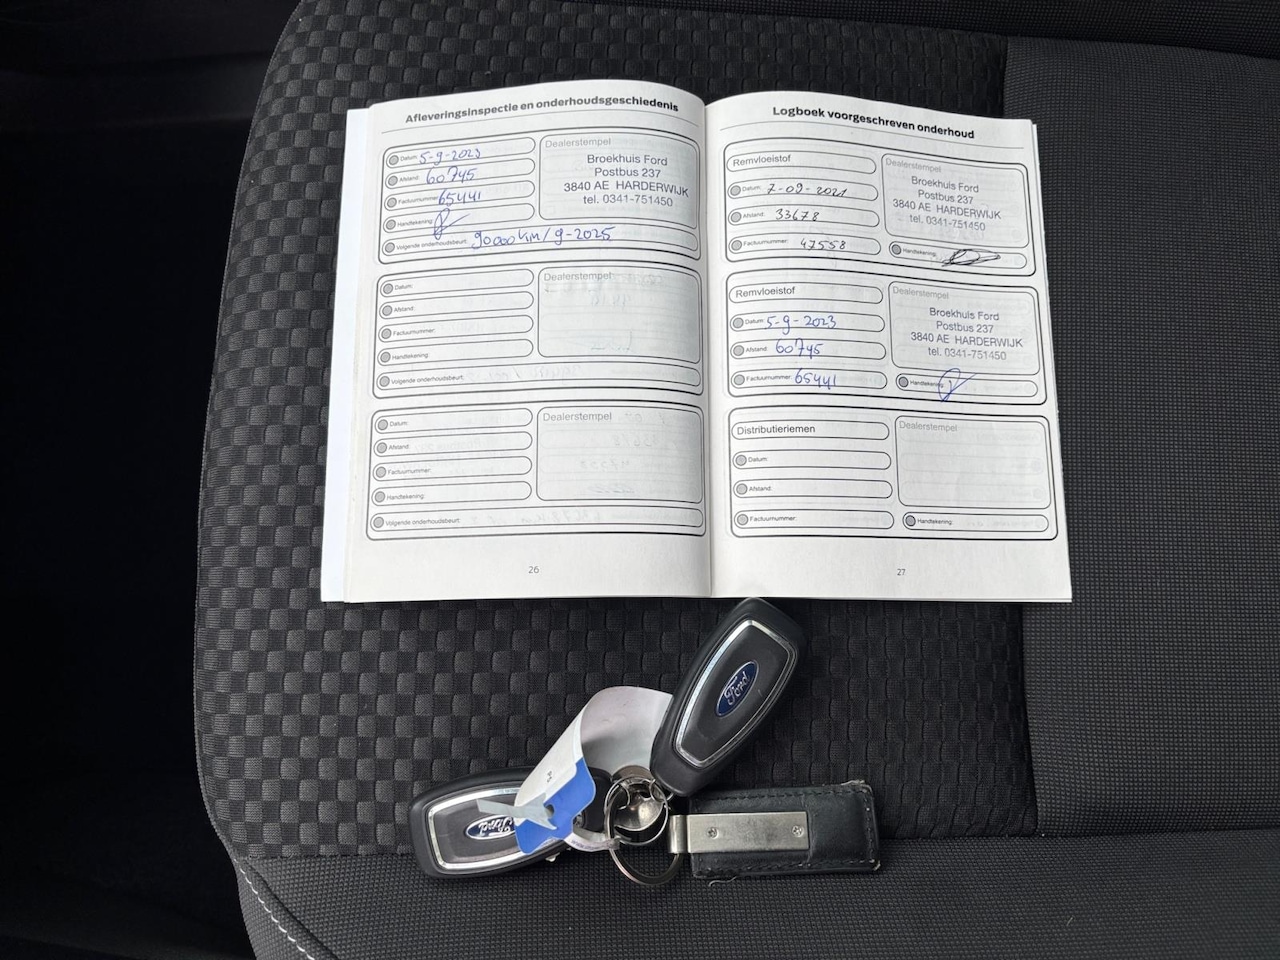 Afleveringsinspectie en onderhoudsgeschiedenis
Datum: 5-9-2023
Afstand: 60745
Factuurnummer: 65441
Handtekening:
Volgende onderhoudsbeurt: 90000 km / 9-2025
Dealerstempel
Broekhuis Ford
Postbus 237
3840 AE HARDERWIJK
tel. 0341-751450
Datum:
Afstand:
Factuurnummer:
Handtekening:
Volgende onderhoudsbeurt:
Dealerstempel
Datum:
Afstand:
Factuurnummer:
Handtekening:
Volgende onderhoudsbeurt:
Dealerstempel
26
Logboek voorgeschreven onderhoud
Remvloeistof
Datum: 7-09-2021
Afstand: 33678
Factuurnummer: 47558
Dealerstempel
Broekhuis Ford
Postbus 237
3840 AE HARDERWIJK
tel. 0341-751450
Handtekening:
Remvloeistof
Datum: 5-9-2023
Afstand: 60745
Factuurnummer: 65441
Dealerstempel
Broekhuis Ford
Postbus 237
3840 AE HARDERWIJK
tel. 0341-751450
Handtekening:
Distributieriemen
Datum:
Afstand:
Factuurnummer:
Dealerstempel
Handtekening:
27
Ford
Ford